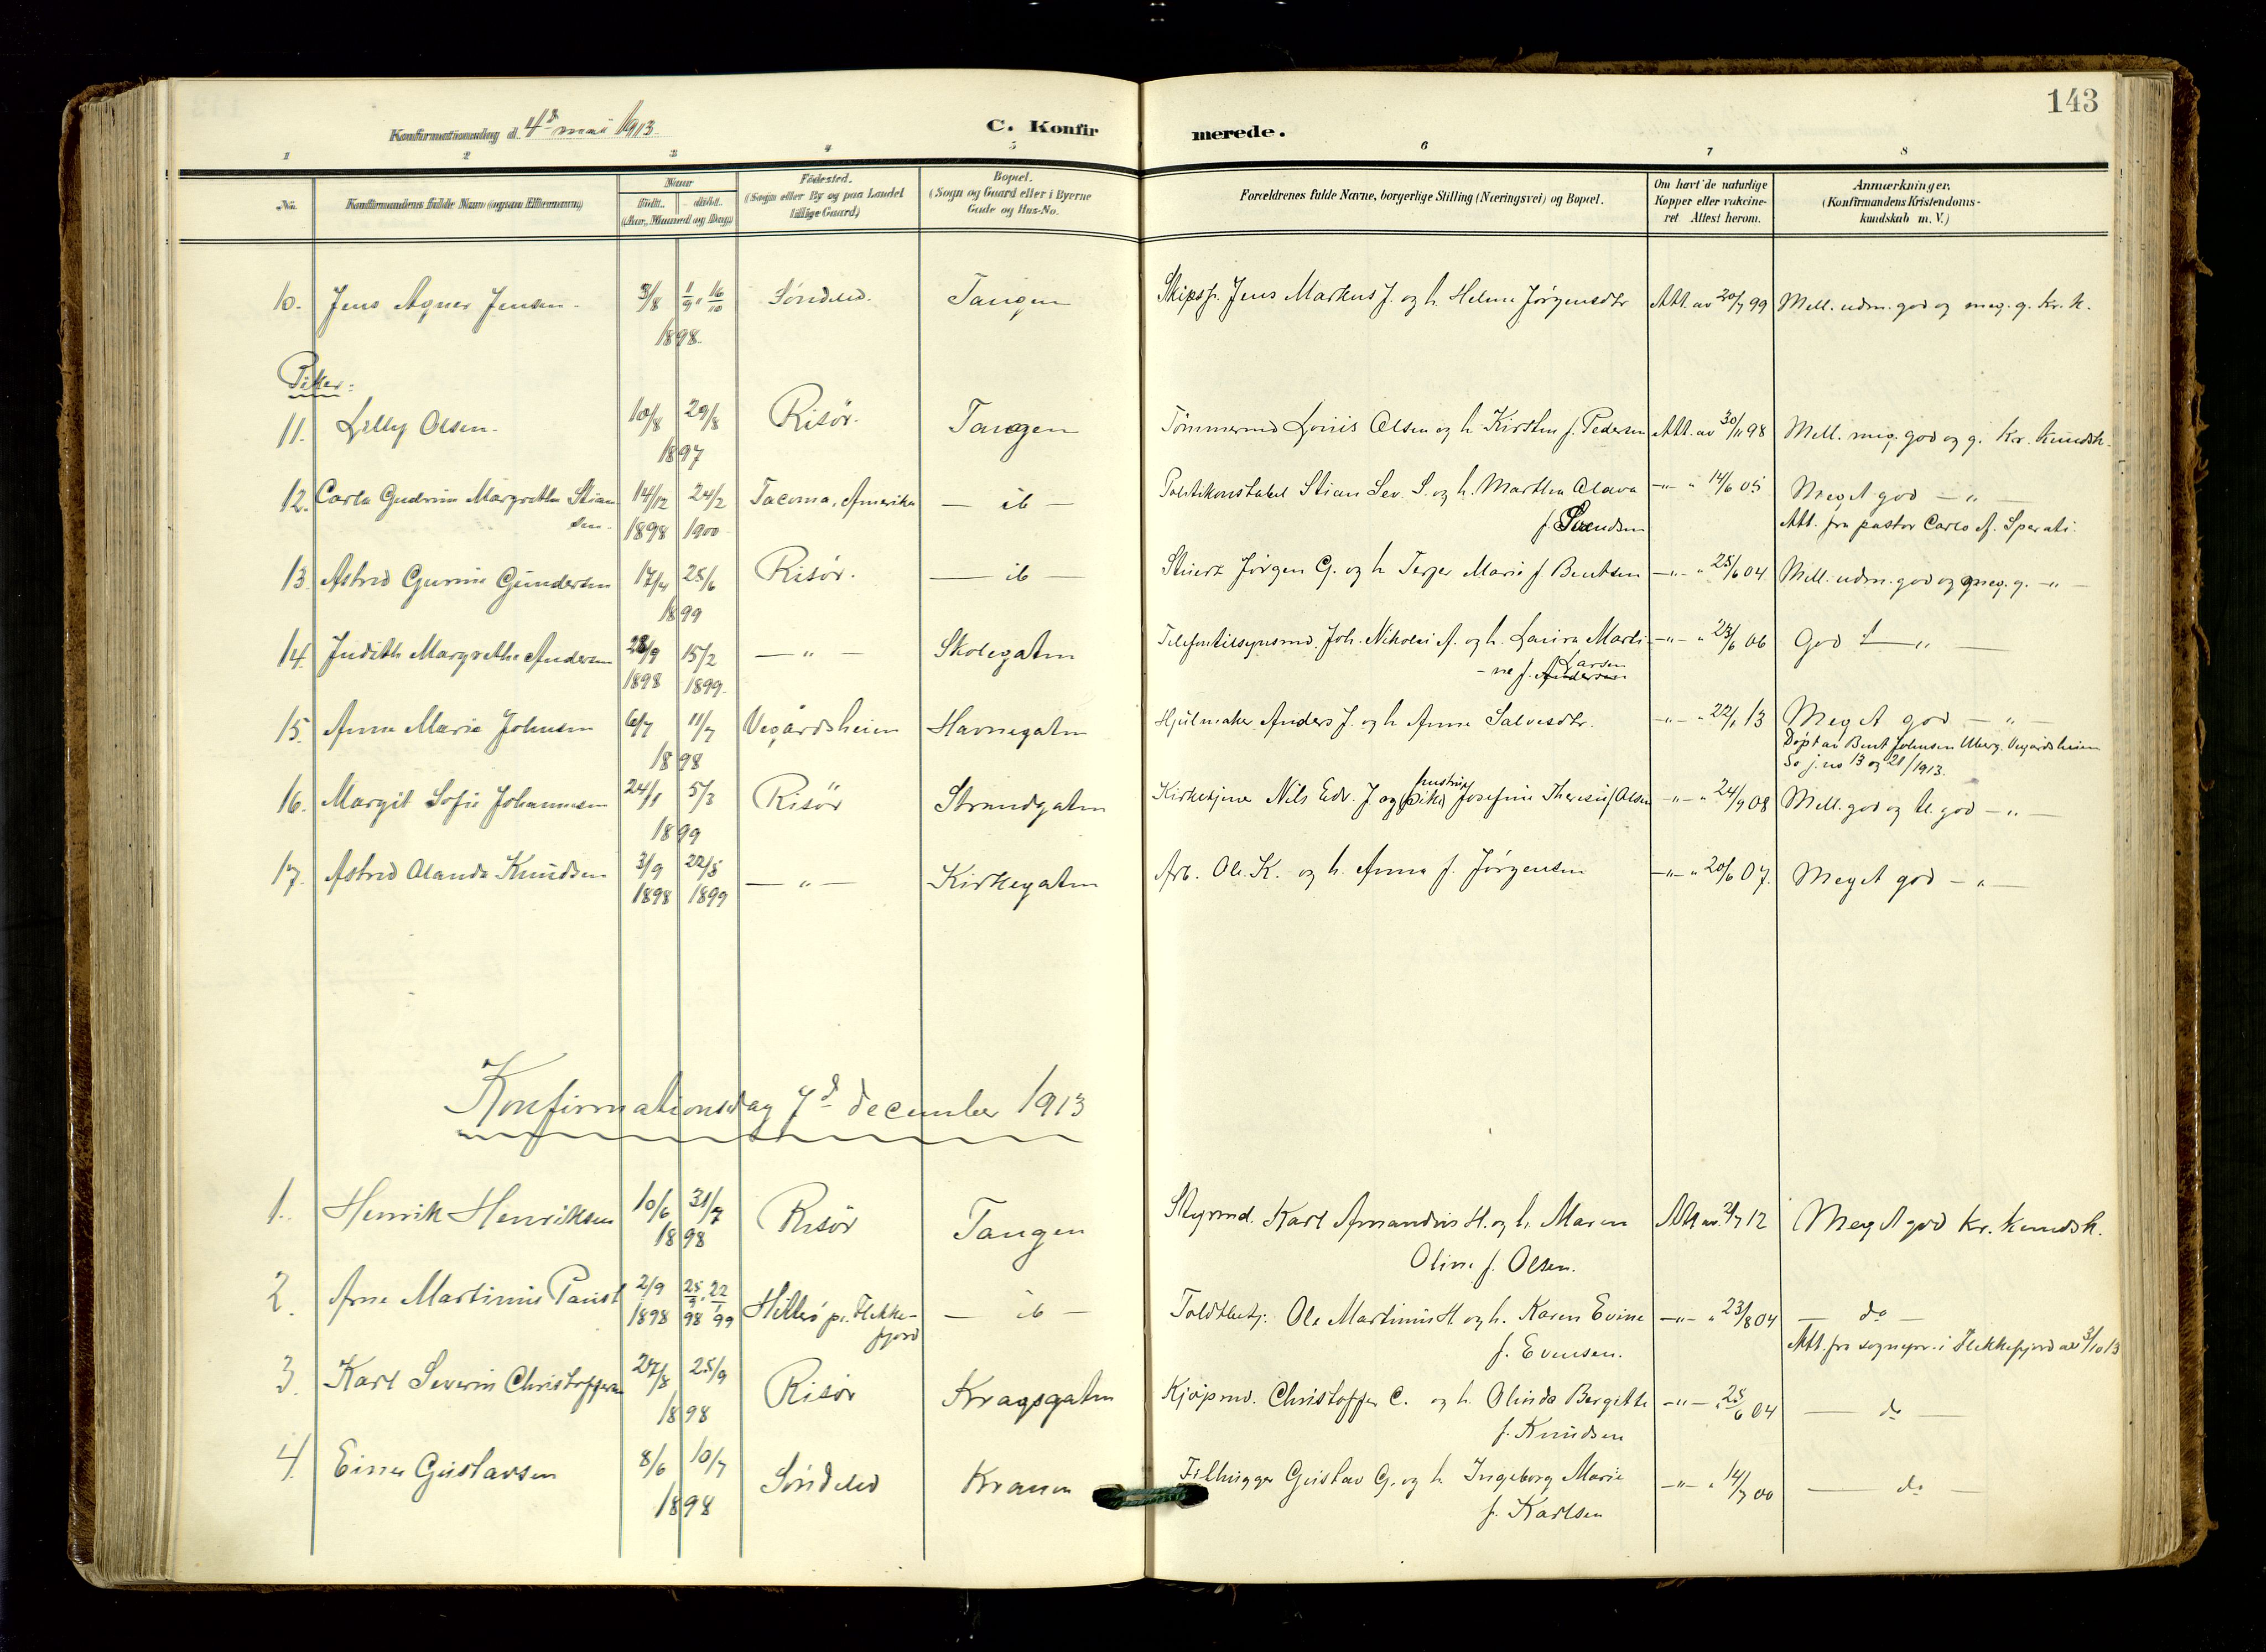 143
Konfirmationsdag d. 4de mai 1913.
C. Konfirmerede.
1 2 3 4 5 6 7 8
No. Konfirmandens fulde Navn (ogsaa Efternavn) Naar Födt. döbt. (Aar, Maaned og Dag) Födested. (Sogn eller By og paa Landet tillige Gaard) Bopæl. (Sogn og Gaard eller i Byerne Gade og Hus-No. Forældrenes fulde Navne, borgerlige Stilling (Næringsvei) og Bopæl. Om havt de naturlige Kopper eller vakcineret Attest herom. Anmærkninger. (Konfirmandens Kristendomskundskab m. V.)
10. Jens Agner Jensen. 3/8 1/9. 16/10 1898. Søndeled. Tangen Skipsf. Jens Markus J. og h. Helene Jørgensdtr Att. av 20/7 99 Mell. udm. god og meg. g. Kr. k.
Piker:
11. Lilly Olsen. 10/8 29/8 1897 Risör. Tangen Tømmermd Louis Olsen og h. Kirsten f. Pedersen Att. av 30/11 98 Mell. meg. god og g. Kr. Kundsk.
12. Carla Gudrun Margrethe Stian 14/12 24/2 Tacoma, Amerika — ib — Politikonstabel Stian Sev. S. og h. Marthea Olava —"— " 14/6 05 Meget god — " —
sen. 1898 1900 f. Svendsen Att. fra pastor Carlo A. Sperati.
13. Astrid Gurine Gundersen 17/4 25/6 1899 Risör. — ib — Stuert Jørgen G. og h. Terjer Marie f. Bentsen —"— " 25/6 04 Mell. udm. god og meg. g. — " —
14. Judith Margrethe Andersen 28/9 15/2 — " — Skolegaten Telefontilsynsmd. Joh. Nikolai A. og h. Laura Marti- —"— " 23/6 06 God — " —
1898 1899. - ne f. Andersen Larsen
15. Anna Marie Johnsen 6/7 11/7 1898 Vegårdsheien Havnegaten Hjulmaker Anders J. og h. Anne Salvesdtr. —"— " 22/1 13 Meget god — " —
Døpt av Bent Johnsen Uberg. Vegårdsheien
Se j. no 13 og 21/1913.
16. Margit Sofie Johannesen 24/1 5/3 1899 Risör Strandgaten Kirketjener Nils Edv. J og (pike) hustru Josefine Theresie f Olsen —"— " 24/9 08 Mell. god og tl. god — " —
17. Astrid Olanda Knudsen 3/9 22/5 — " — Kirkegaten Arb. Ole K. og h. Anna f. Jörgensen —"— " 20/6 07. Meget god — " —
1898 1899
Konfirmationsdag 7de december 1913
1. Henrik Henriksen 10/6 31/7 1898 Risör Tangen Styrmd. Karl Amandus H. og h. Maren Att av 2/7 12 Meget god kr. kundsk.
Oline f. Olsen.
2. Arne Martinius Paust 2/9 25/9. 22/1 Hitterö pr. Flekke- — ib — Toldbetj. Ole Martinius H. og h. Karen Evine —"— " 23/8 04 — do —
1898 98 99 fjord f. Evensen. Att. fra sognepr. i Flekkefjord av 3/10 13
3. Karl Severin Christoffersen 27/8 25/9 1898 Risör Kragsgaten Kjöpmd. Christoffer C. og h. Olinda Bergitte —"— " 25/6 04 — do —
f. Knudsen
4. Einer Gustavsen 8/6 10/7 1898 Söndeled Kranen Filhugger Gustav G. og h. Ingeborg Marie —"— " 14/7 00 — do —
f. Karlsen